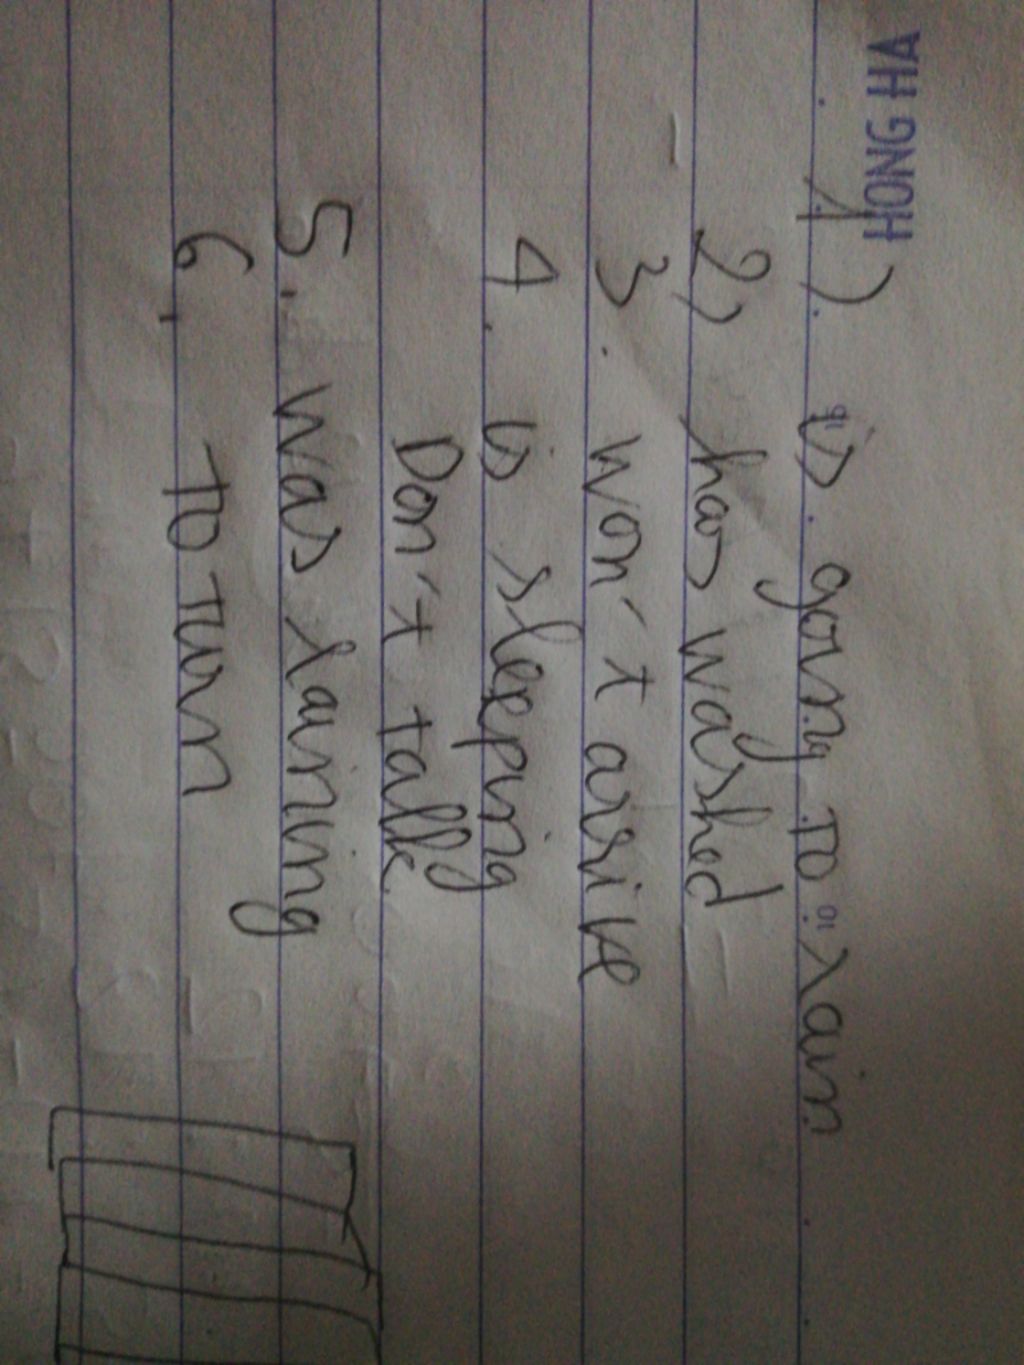 HONG HA
1) is going to rain
2) has washed
3. won't arive
4. is sleeping
Don't talk
5. was raining
6. to turn